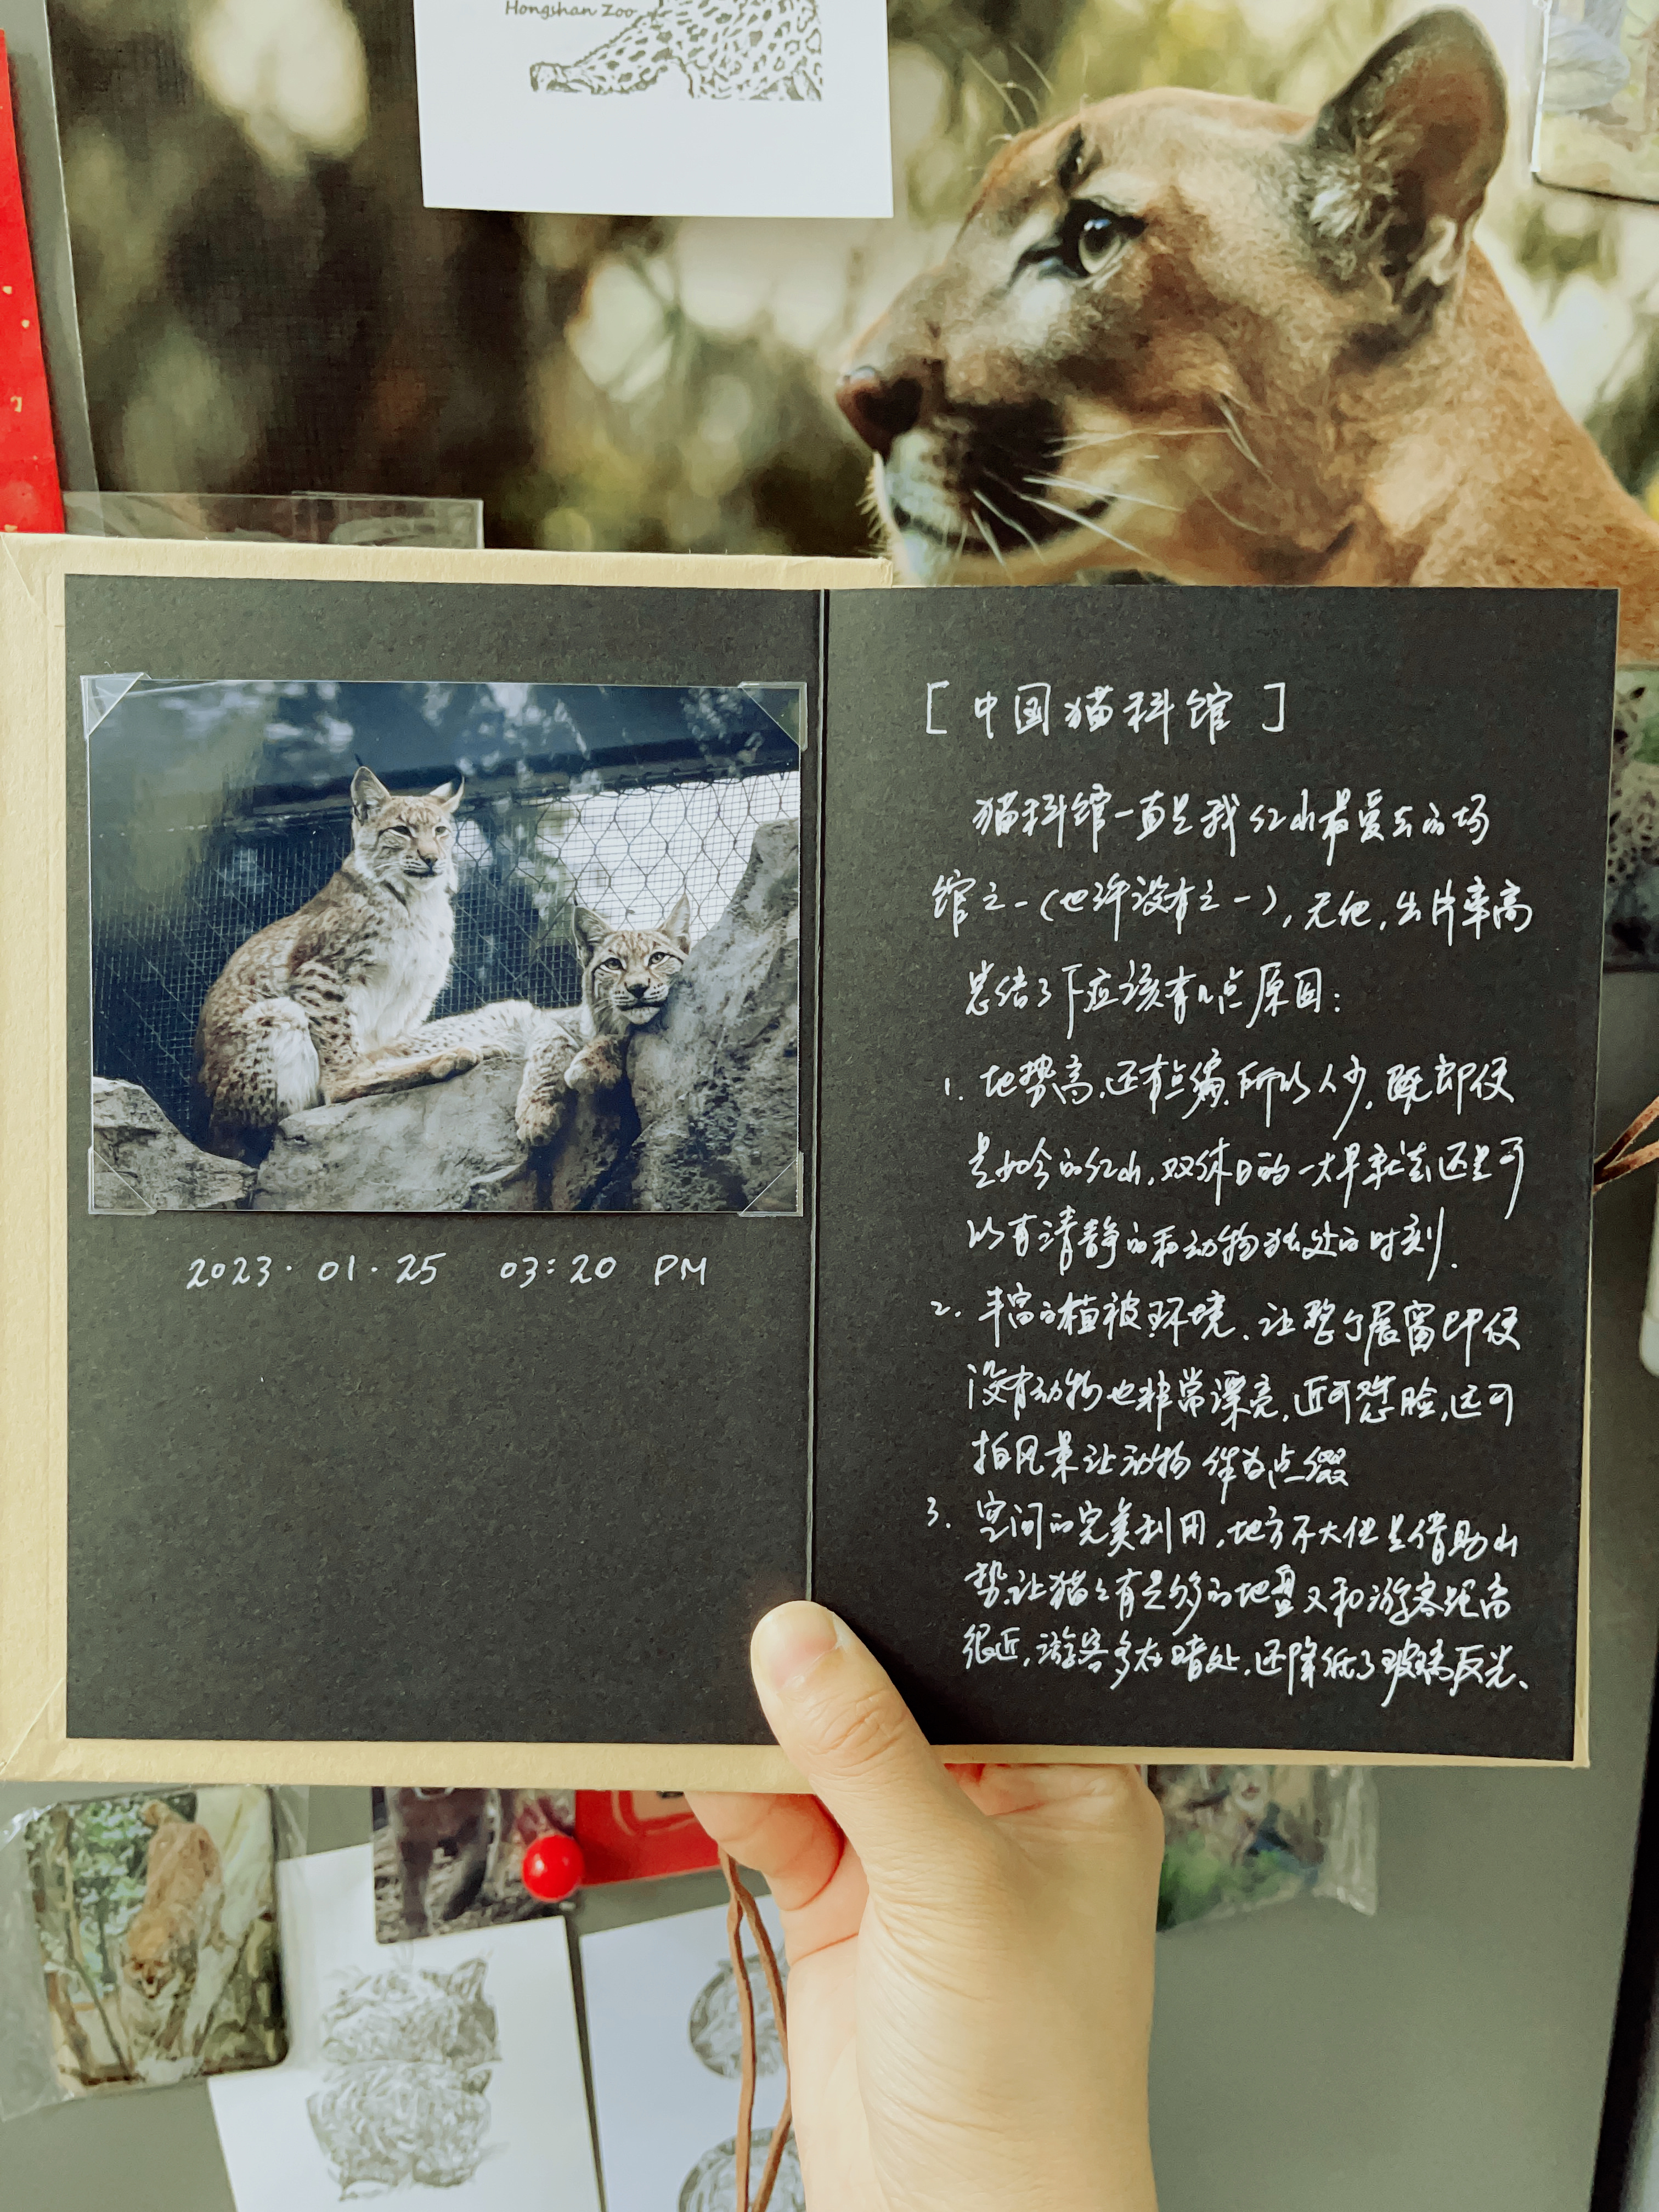 Hongshan Zoo
2023.01.25 03:20 PM
[中国猫科馆]
猫科馆一直是我红山最爱去的场
馆之一(也许没有之一),无他,出片率高
总结了下应该有几点原因:
1. 地势高,还有点偏,所以人少,即便
是如今的红山,双休日的一大早就去还是可
以有清静的和动物独处的时刻.
2. 丰富的植被环境、让整个展窗即便
没有动物也非常漂亮,近可怼脸,远可
拍风景让动物作为点缀
3. 空间的完美利用,地方不大但是借助山
势让猫猫有足够的地盘又和游客距离
很近,游客多在暗处,还降低了玻璃反光、